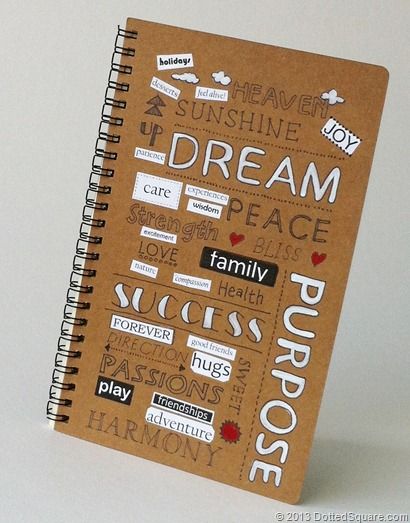 holidays
desserts feel alive! HEAVEN
SUNSHINE JOY
UP DREAM
patience
care experiences
wisdom PEACE
Strength
excitement BLISS
LOVE family
nature compassion Health
SUCCESS
PURPOSE
FOREVER good friends
DIRECTION hugs SWEET
PASSIONS
play friendships
adventure
HARMONY
© 2013 DottedSquare.com